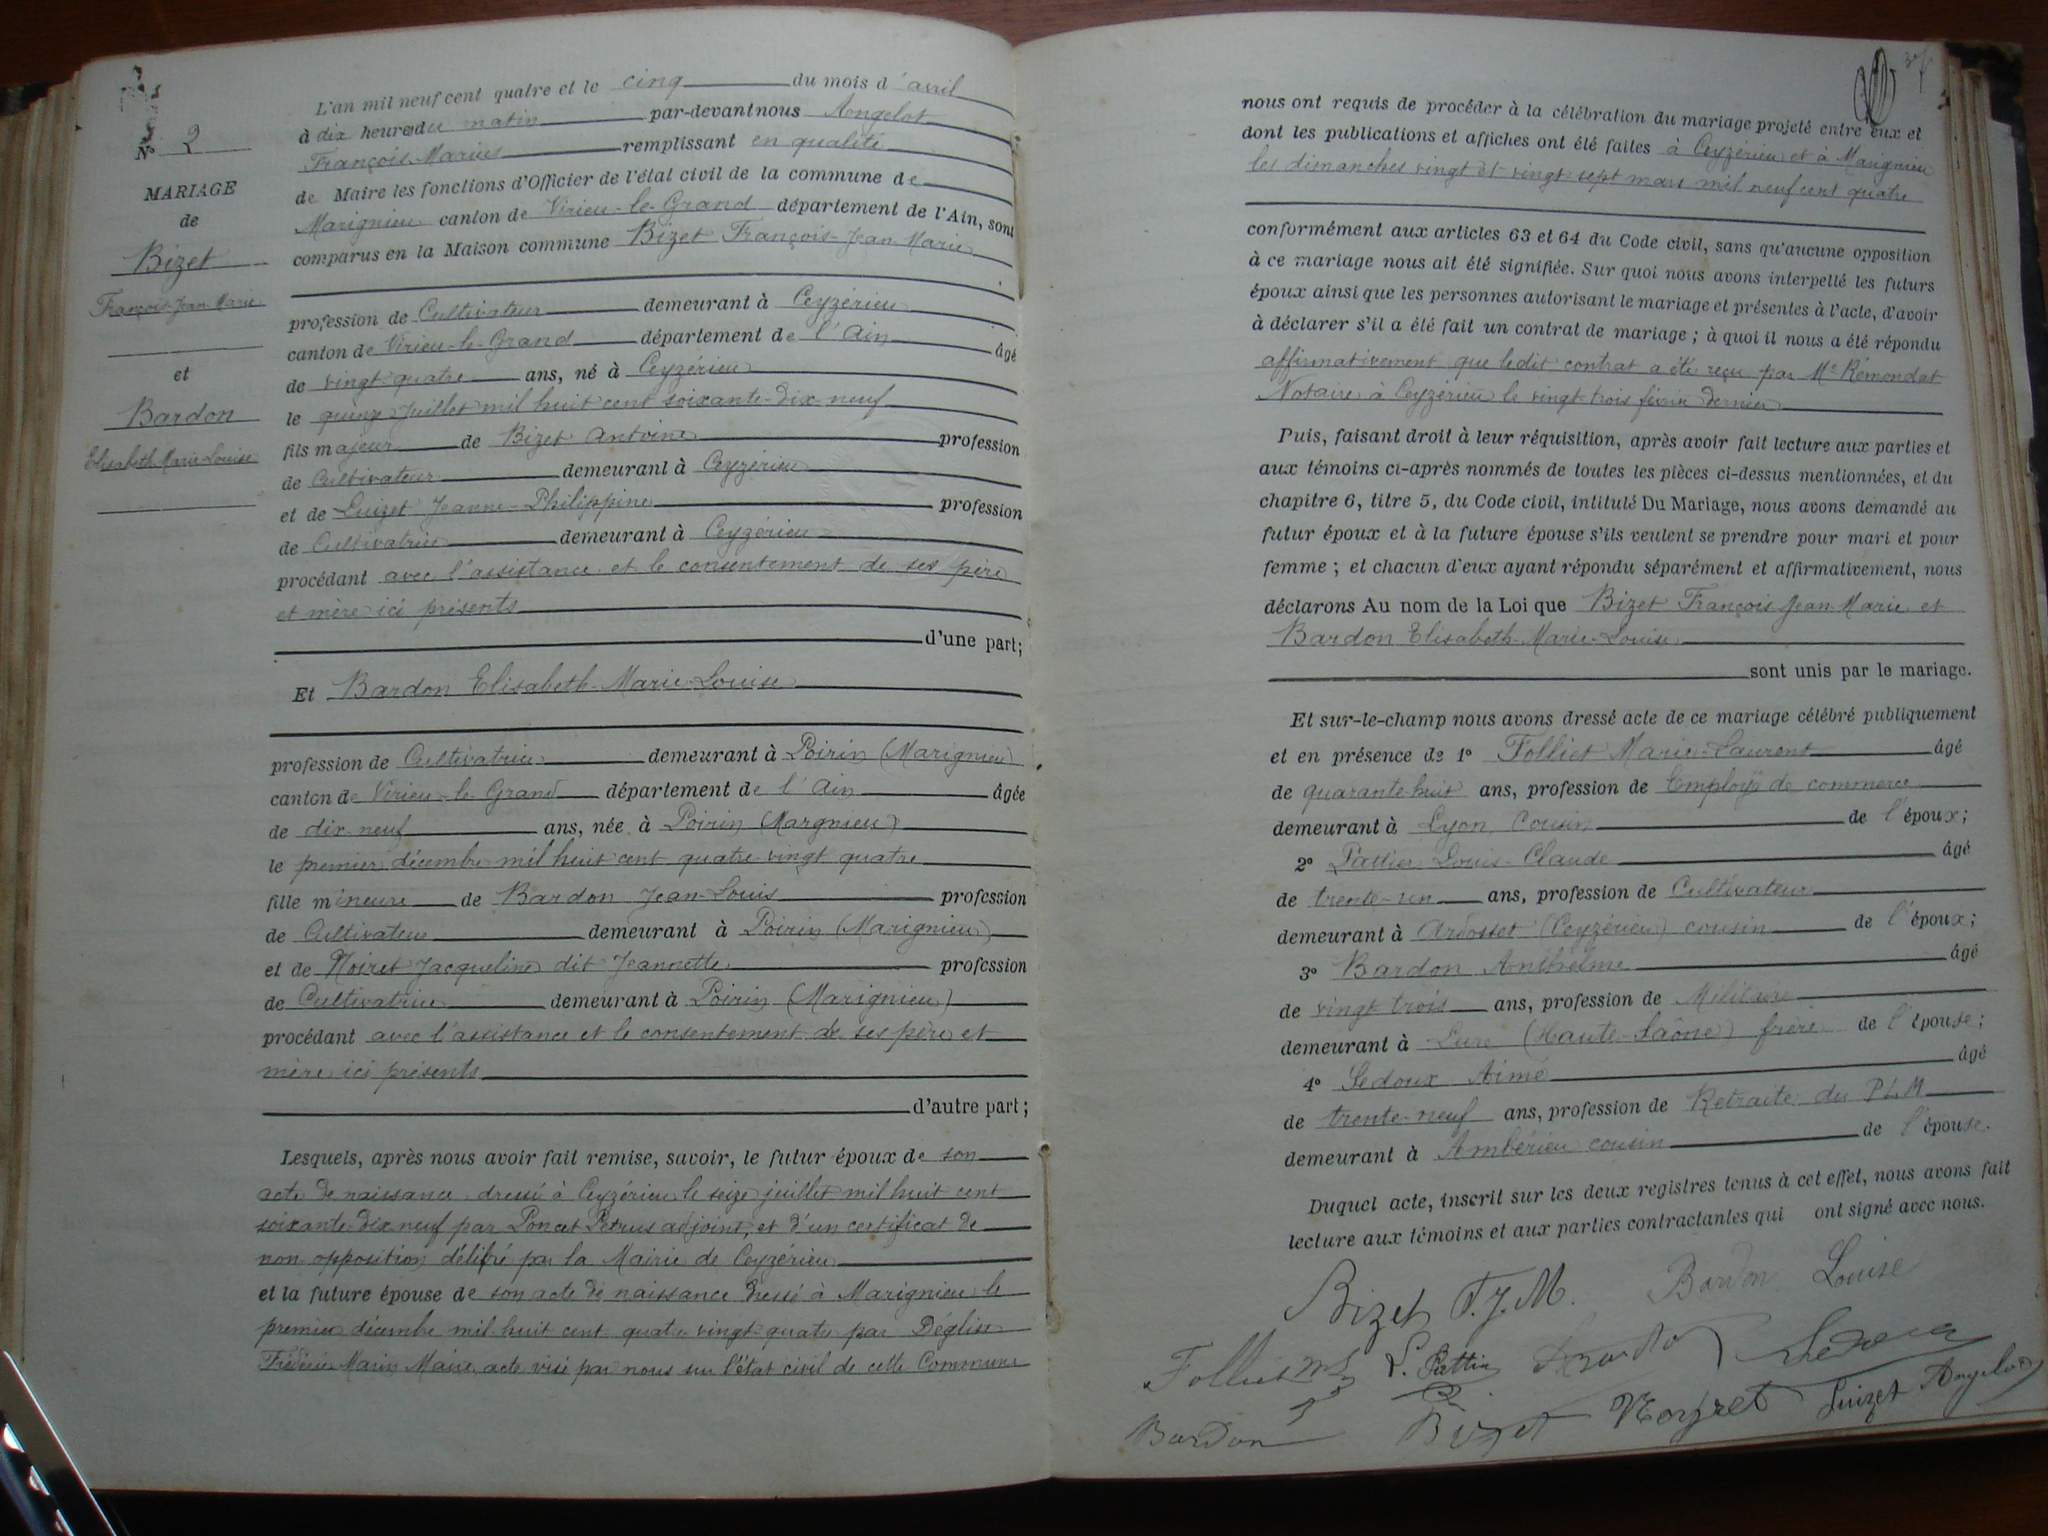 N° 2
MARIAGE
de
Bizet
François Jean Marie
et
Bardon
Elisabeth Marie Louise
L'an mil neuf cent quatre et le cinq du mois d'avril
à dix heures du matin par-devant nous Angelot
François Marius remplissant en qualité
de Maire les fonctions d'Officier de l'état civil de la commune de
Marignieu canton de Virieu-le-Grand département de l'Ain, sont
comparus en la Maison commune Bizet François-Jean Marie
profession de Cultivateur demeurant à Ceyzérieu
canton de Virieu-le-Grand département de l'Ain âgé
de vingt-quatre ans, né à Ceyzérieu
le quinze Juillet mil huit cent soixante-dix-neuf
fils majeur de Bizet Antoine profession
de Cultivateur demeurant à Ceyzérieu
et de Luizet Jeanne-Philippine profession
de Cultivatrice demeurant à Ceyzérieu
procédant avec l'assistance et le consentement de ses père
et mère ici présents
d'une part;
Et Bardon Elisabeth Marie-Louise
profession de Cultivatrice demeurant à Poirin (Marignieu)
canton de Virieu-le-Grand département de l'Ain âgée
de dix-neuf ans, née à Poirin (Margnieu)
le premier décembre mil huit cent quatre vingt quatre
fille mineure de Bardon Jean-Louis profession
de Cultivateur demeurant à Poirin (Marignieu)
et de Noiret Jacqueline dit Jeannette profession
de Cultivatrice demeurant à Poirin (Marignieu)
procédant avec l'assistance et le consentement de ses père et
mère ici présents
d'autre part;
Lesquels, après nous avoir fait remise, savoir, le futur époux de son
acte de naissance dressé à Ceyzérieu le seize juillet mil huit cent
soixante-dix neuf par Poncet Petrus adjoint, et d'un certificat de
non opposition délivré par la Mairie de Ceyzérieu
et la future épouse de son acte de naissance dressé à Marignieu le
premier décembre mil huit cent quatre vingt quatre par Déglise
Frédéric Marin Maire, acte visé par nous sur l'état civil de cette Commune
nous ont requis de procéder à la célébration du mariage projeté entre eux et
dont les publications et affiches ont été faites à Ceyzérieu et à Marignieu
les dimanches vingt et vingt sept mars mil neuf cent quatre
conformément aux articles 63 et 64 du Code civil, sans qu'aucune opposition
à ce mariage nous ait été signifiée. Sur quoi nous avons interpellé les futurs
époux ainsi que les personnes autorisant le mariage et présentes à l'acte, d'avoir
à déclarer s'il a été fait un contrat de mariage ; à quoi il nous a été répondu
affirmativement que ledit contrat a été reçu par Me Rémondat
Notaire à Ceyzérieu le vingt trois février dernier
Puis, faisant droit à leur réquisition, après avoir fait lecture aux parties et
aux témoins ci-après nommés de toutes les pièces ci-dessus mentionnées, et du
chapitre 6, titre 5, du Code civil, intitulé Du Mariage, nous avons demandé au
futur époux et à la future épouse s'ils veulent se prendre pour mari et pour
femme ; et chacun d'eux ayant répondu séparément et affirmativement, nous
déclarons Au nom de la Loi que Bizet François Jean-Marie et
Bardon Elisabeth-Marie-Louise
sont unis par le mariage.
Et sur-le-champ nous avons dressé acte de ce mariage célébré publiquement
et en présence de 1° Folliet Marie-Laurent âgé
de quarante-huit ans, profession de Employé de commerce
demeurant à Lyon, Cousin de l'époux;
2° Pattier Louis-Claude âgé
de trente-un ans, profession de Cultivateur
demeurant à Ardosset (Ceyzérieu) cousin de l'époux;
3° Bardon Anthelme âgé
de vingt trois ans, profession de Militaire
demeurant à Lure (Haute-Saône) frère de l'épouse;
4° Ledoux Aimé âgé
de trente-neuf ans, profession de Retraité du PLM
demeurant à Ambérieu cousin de l'épouse.
Duquel acte, inscrit sur les deux registres tenus à cet effet, nous avons fait
lecture aux témoins et aux parties contractantes qui ont signé avec nous.
Bizet F.J.M. Bardon Louise
Folliet L. Pattier Ledoux
Bardon Bizet Luizet Angelot